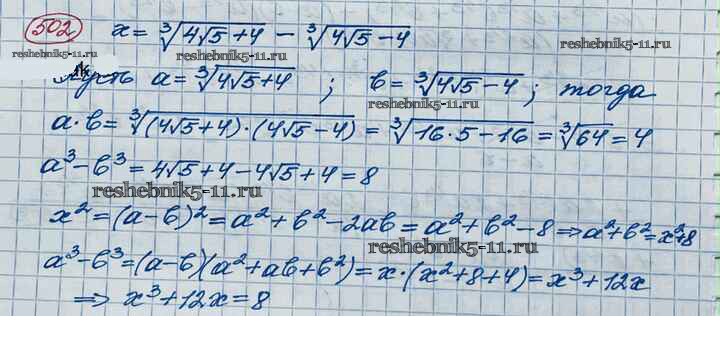 502 x = ∛(4√5+4) − ∛(4√5−4)
reshebnik5-11.ru reshebnik5-11.ru
Пусть a = ∛(4√5+4) ; b = ∛(4√5−4) ; тогда
reshebnik5-11.ru
a·b = ∛((4√5+4)·(4√5−4)) = ∛(16·5−16) = ∛64 = 4
a³−b³ = 4√5+4−4√5+4 = 8
reshebnik5-11.ru
x² = (a−b)² = a²+b²−2ab = a²+b²−8 ⇒ a²+b² = x²+8
reshebnik5-11.ru
a³−b³ = (a−b)(a²+ab+b²) = x·(x²+8+4) = x³+12x
⇒ x³+12x = 8